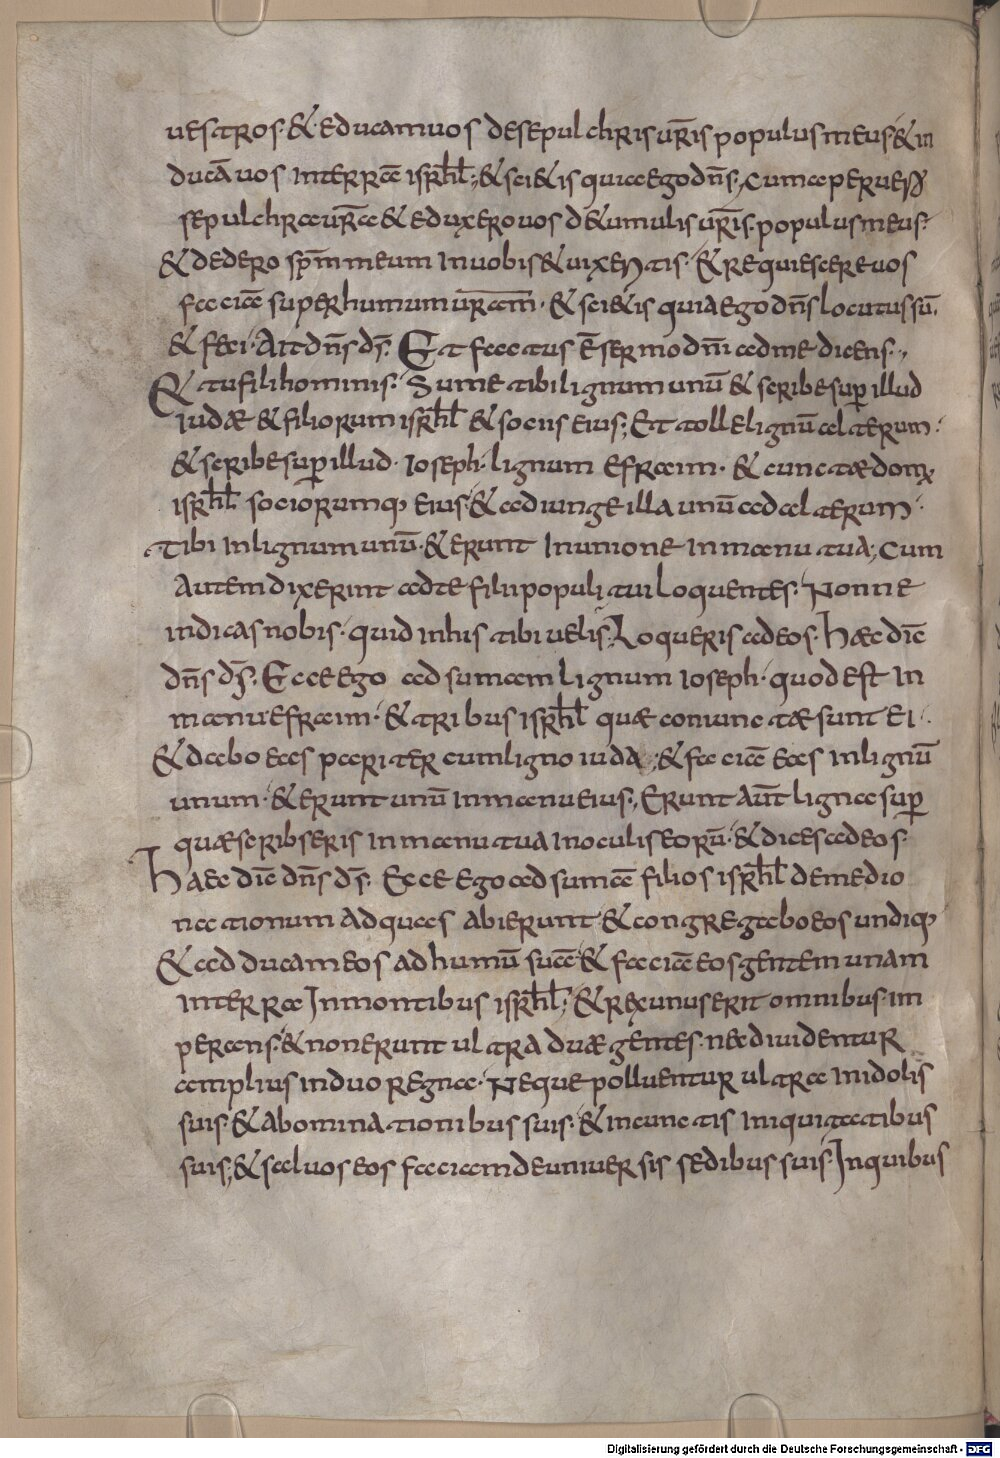 uestros· & educam uos de sepulchris ur̄is populus meus· & in
ducā uos in terrā isrl̄h; & sci&is quia ego dn̄s, Cum aperuero
sepulchra ur̄a & eduxero uos de tumulis ur̄is· populus meus·
& dedero sp̄m meum in uobis & uixeritis· & requiescere uos
faciā super humum ur̄am· & sci&is quia ego dn̄s locutus sū·
& feci· Ait dn̄s d̄s· Et factus ē sermo dn̄i ad me dicens·,
Et tu fili hominis· Sume tibi lignum unū & scribe sup illud
iudæ & filiorum isrl̄h & sociis eius; Et tolle lignū alterum·
& scribe sup illud· Ioseph· lignum efraim· & cunctæ domui
isrl̄h sociorumq; eius· & adiunge illa unū ad alterum·
Tibi in lignum unū· & erunt in unione in manu tua; Cum
autem dixerint ad te filii populi tui loquentes· Nonne
indicas nobis· quid in his tibi uelis· Loqueris ad eos· hæc diē
dn̄s d̄s· Ecce ego adsumam lignum ioseph· quod est in
manu efraim· & tribus isrl̄h quæ coniunctæ sunt ei·
& dabo eas pariter cum ligno iuda; & faciā eas in lignū
unum· & erunt unū in manu eius·, Erunt aūt ligna sup
quæ scribseris in manu tua in oculis eorū· & dices ad eos·
Haec diē dn̄s d̄s· Ecce ego adsumā filios isrl̄h de medio
nationum ad quas abierunt· & congregabo eos undiq;
& adducam eos ad humū suā· & faciā eos gentem unam
in terra In montibus isrl̄h; & rex unus erit omnibus im
perans· & non erunt ultra duæ gentes· nec diuidentur
amplius in duo regna· Neque polluentur ultra in idolis
suis· & abominationibus suis· & in cunctis iniquitatibus
suis; & saluos eos faciam de uniuersis sedibus suis· In quibus
Digitalisierung gefördert durch die Deutsche Forschungsgemeinschaft - DFG